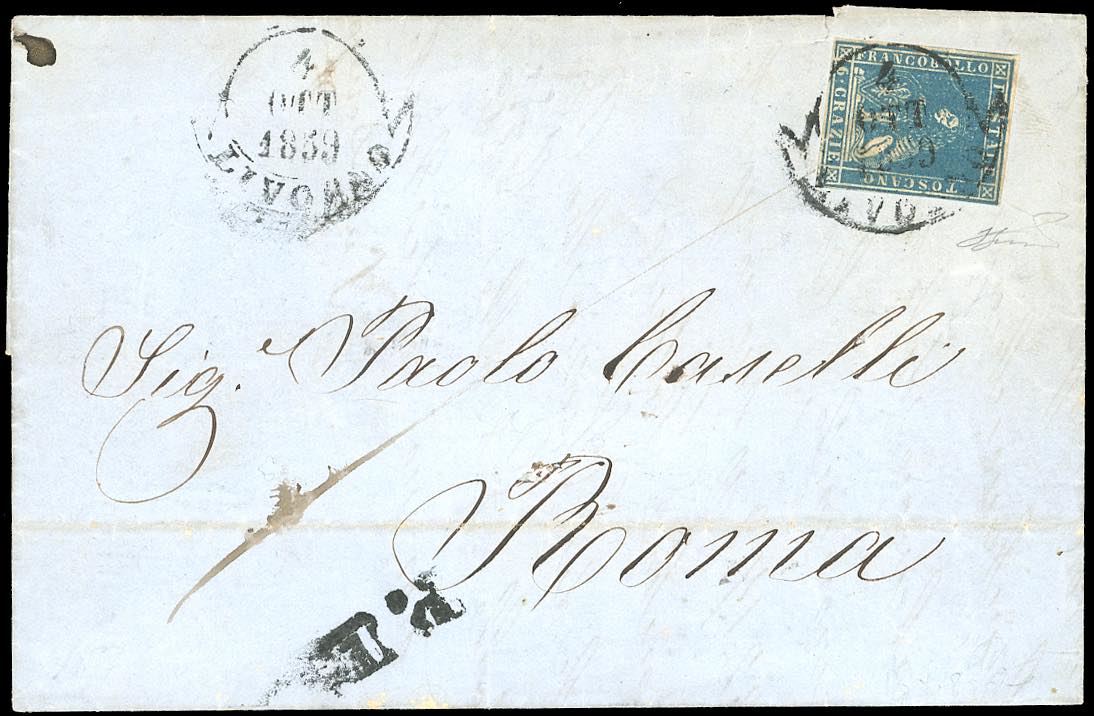 4
OTT
1859
LIVORNO
FRANCOBOLLO
6 CRAZIE
TOSCANO
4
OTT
Sig.e Paolo Caselli
Roma
P.D